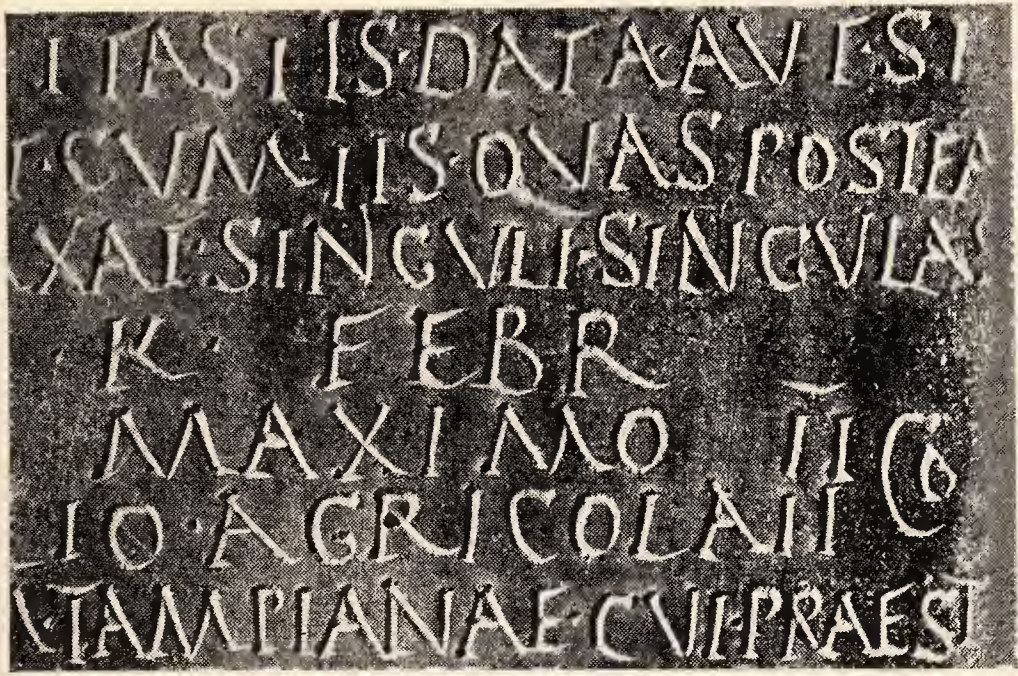 ITASIIS·DATA·AVT·SI
T·CVM·IIS·QVAS POSTEA
XAT·SINGVLI·SINGVLAS
K· FEBR
MAXIMO II COS
IO·AGRICOLA II
TAMPIANAE·CVI·PRAEST